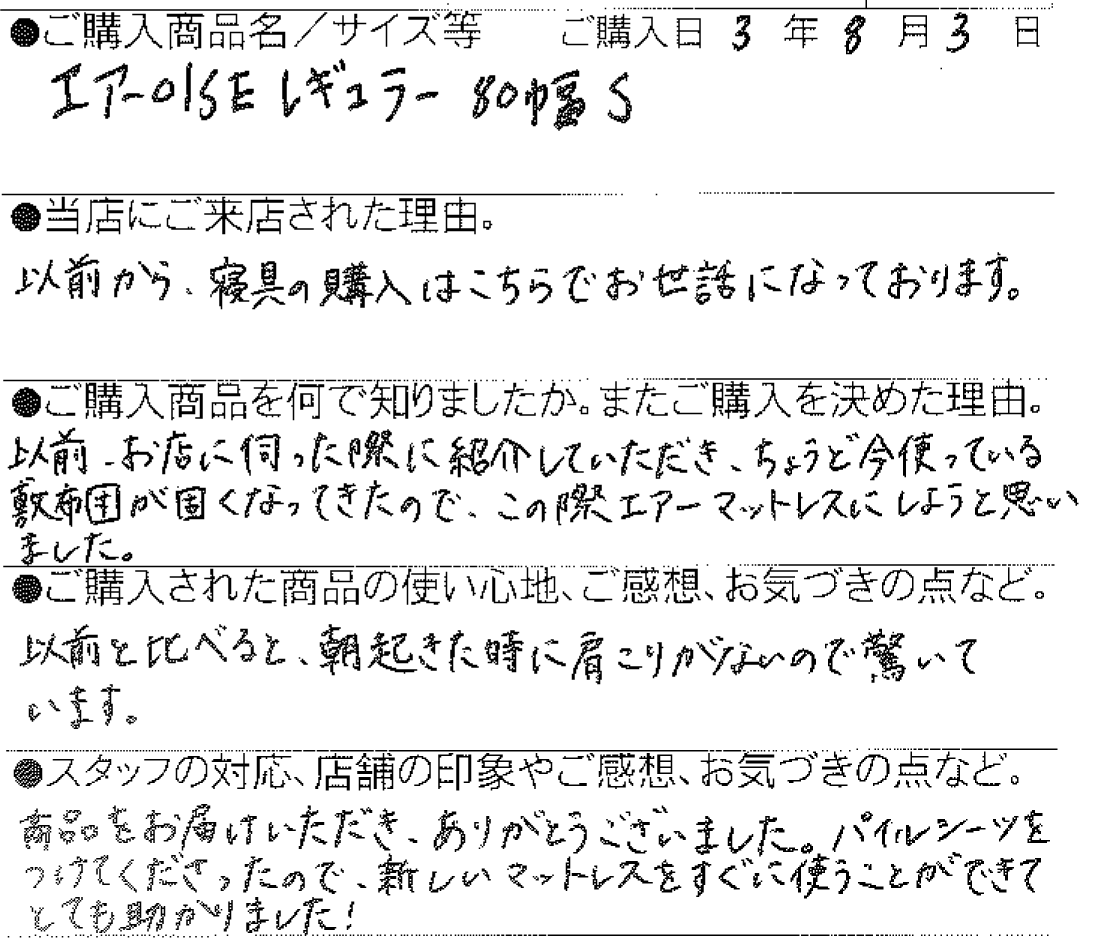 ●ご購入商品名／サイズ等　ご購入日 3 年 8 月 3 日
エアー01SE レギュラー 80巾幅 S
●当店にご来店された理由。
以前から、寝具の購入はこちらでお世話になっております。
●ご購入商品を何で知りましたか。またご購入を決めた理由。
以前、お店に伺った際に紹介していただき、ちょうど今使っている
敷布団が固くなってきたので、この際エアーマットレスにしようと思い
ました。
●ご購入された商品の使い心地、ご感想、お気づきの点など。
以前と比べると、朝起きた時に肩こりがないので驚いて
います。
●スタッフの対応、店舗の印象やご感想、お気づきの点など。
商品をお届けいただき、ありがとうございました。パイルシーツを
つけてくださったので、新しいマットレスをすぐに使うことができて
とても助かりました！